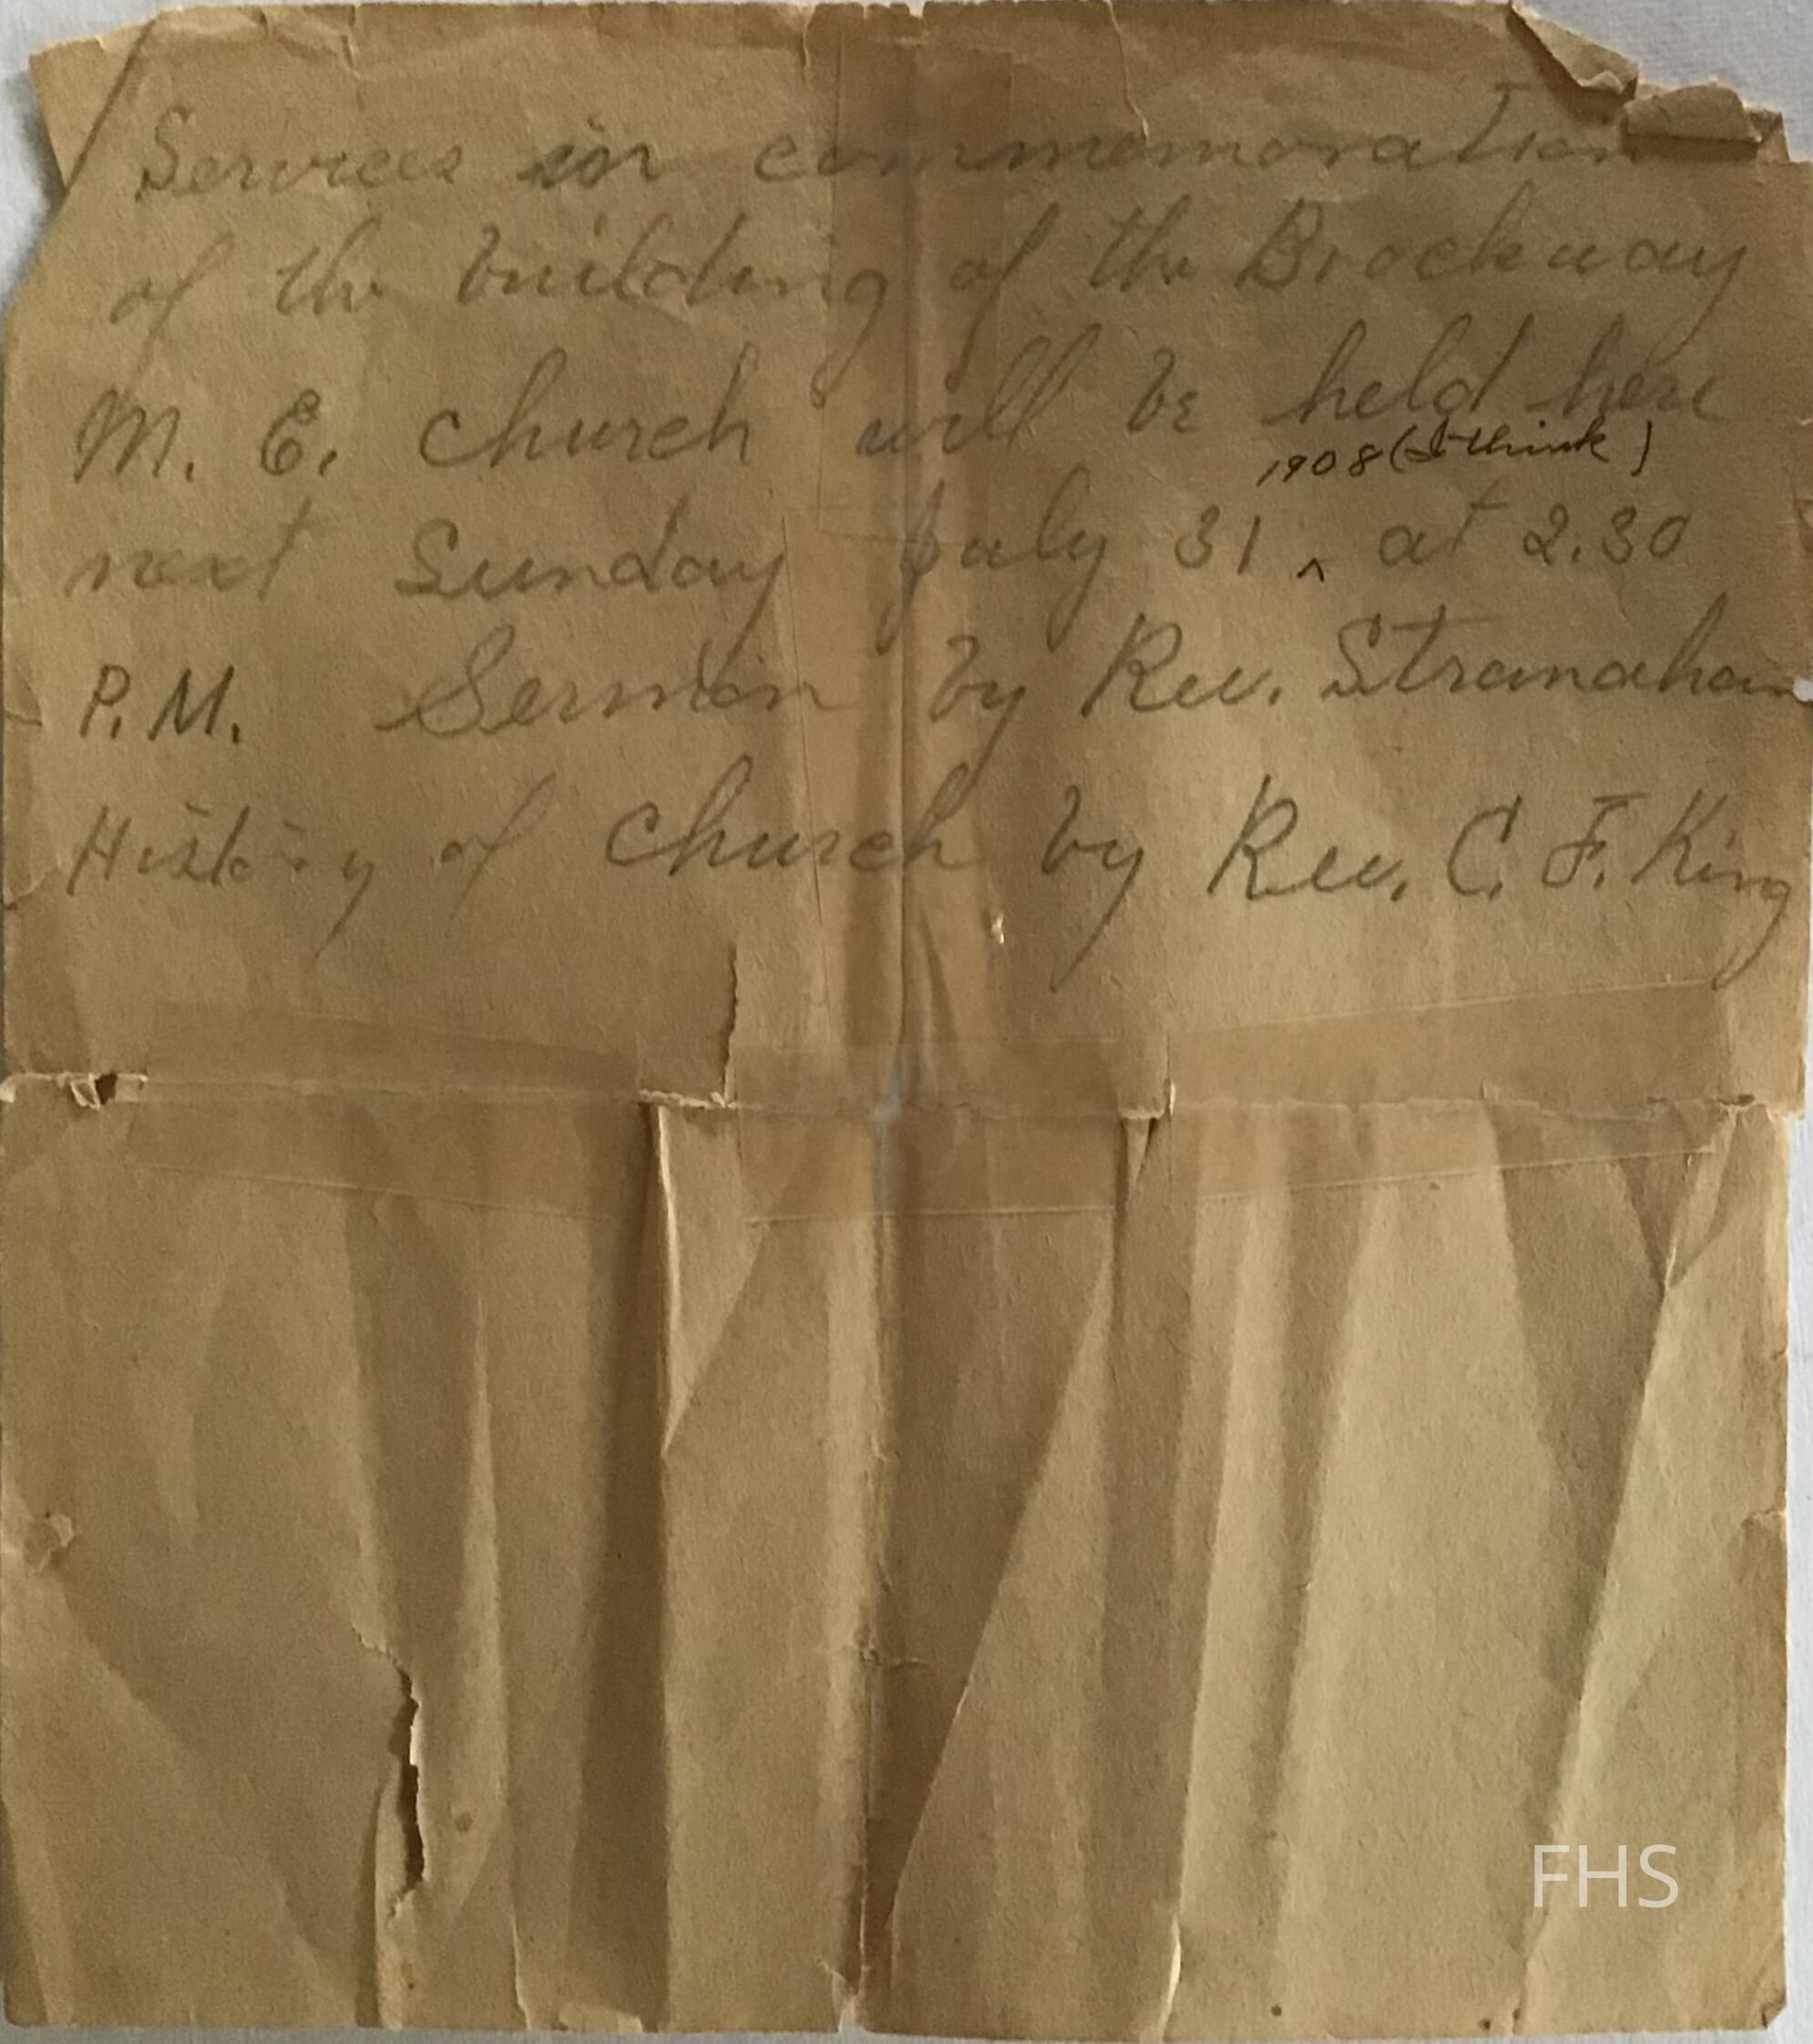 Services in commemoration
of the building of the Brockway
M. E. church will be held here
1908 (I think)
next Sunday July 31 ^ at 2.30
P.M. Sermon by Rev. Stranahan
History of church by Rev. C. F. King
FHS